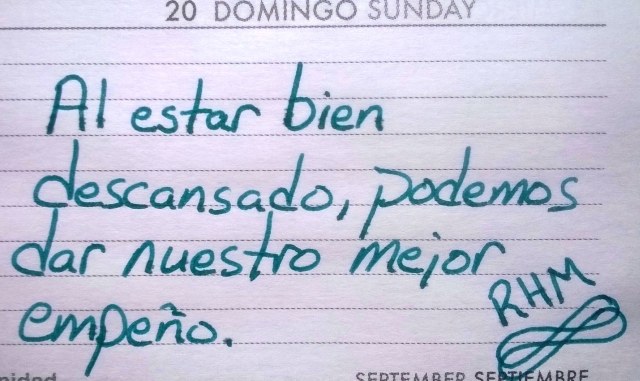 20 DOMINGO SUNDAY
Al estar bien
descansado, podemos
dar nuestro mejor
empeño.
RHM
SEPTEMBER SEPTIEMBRE